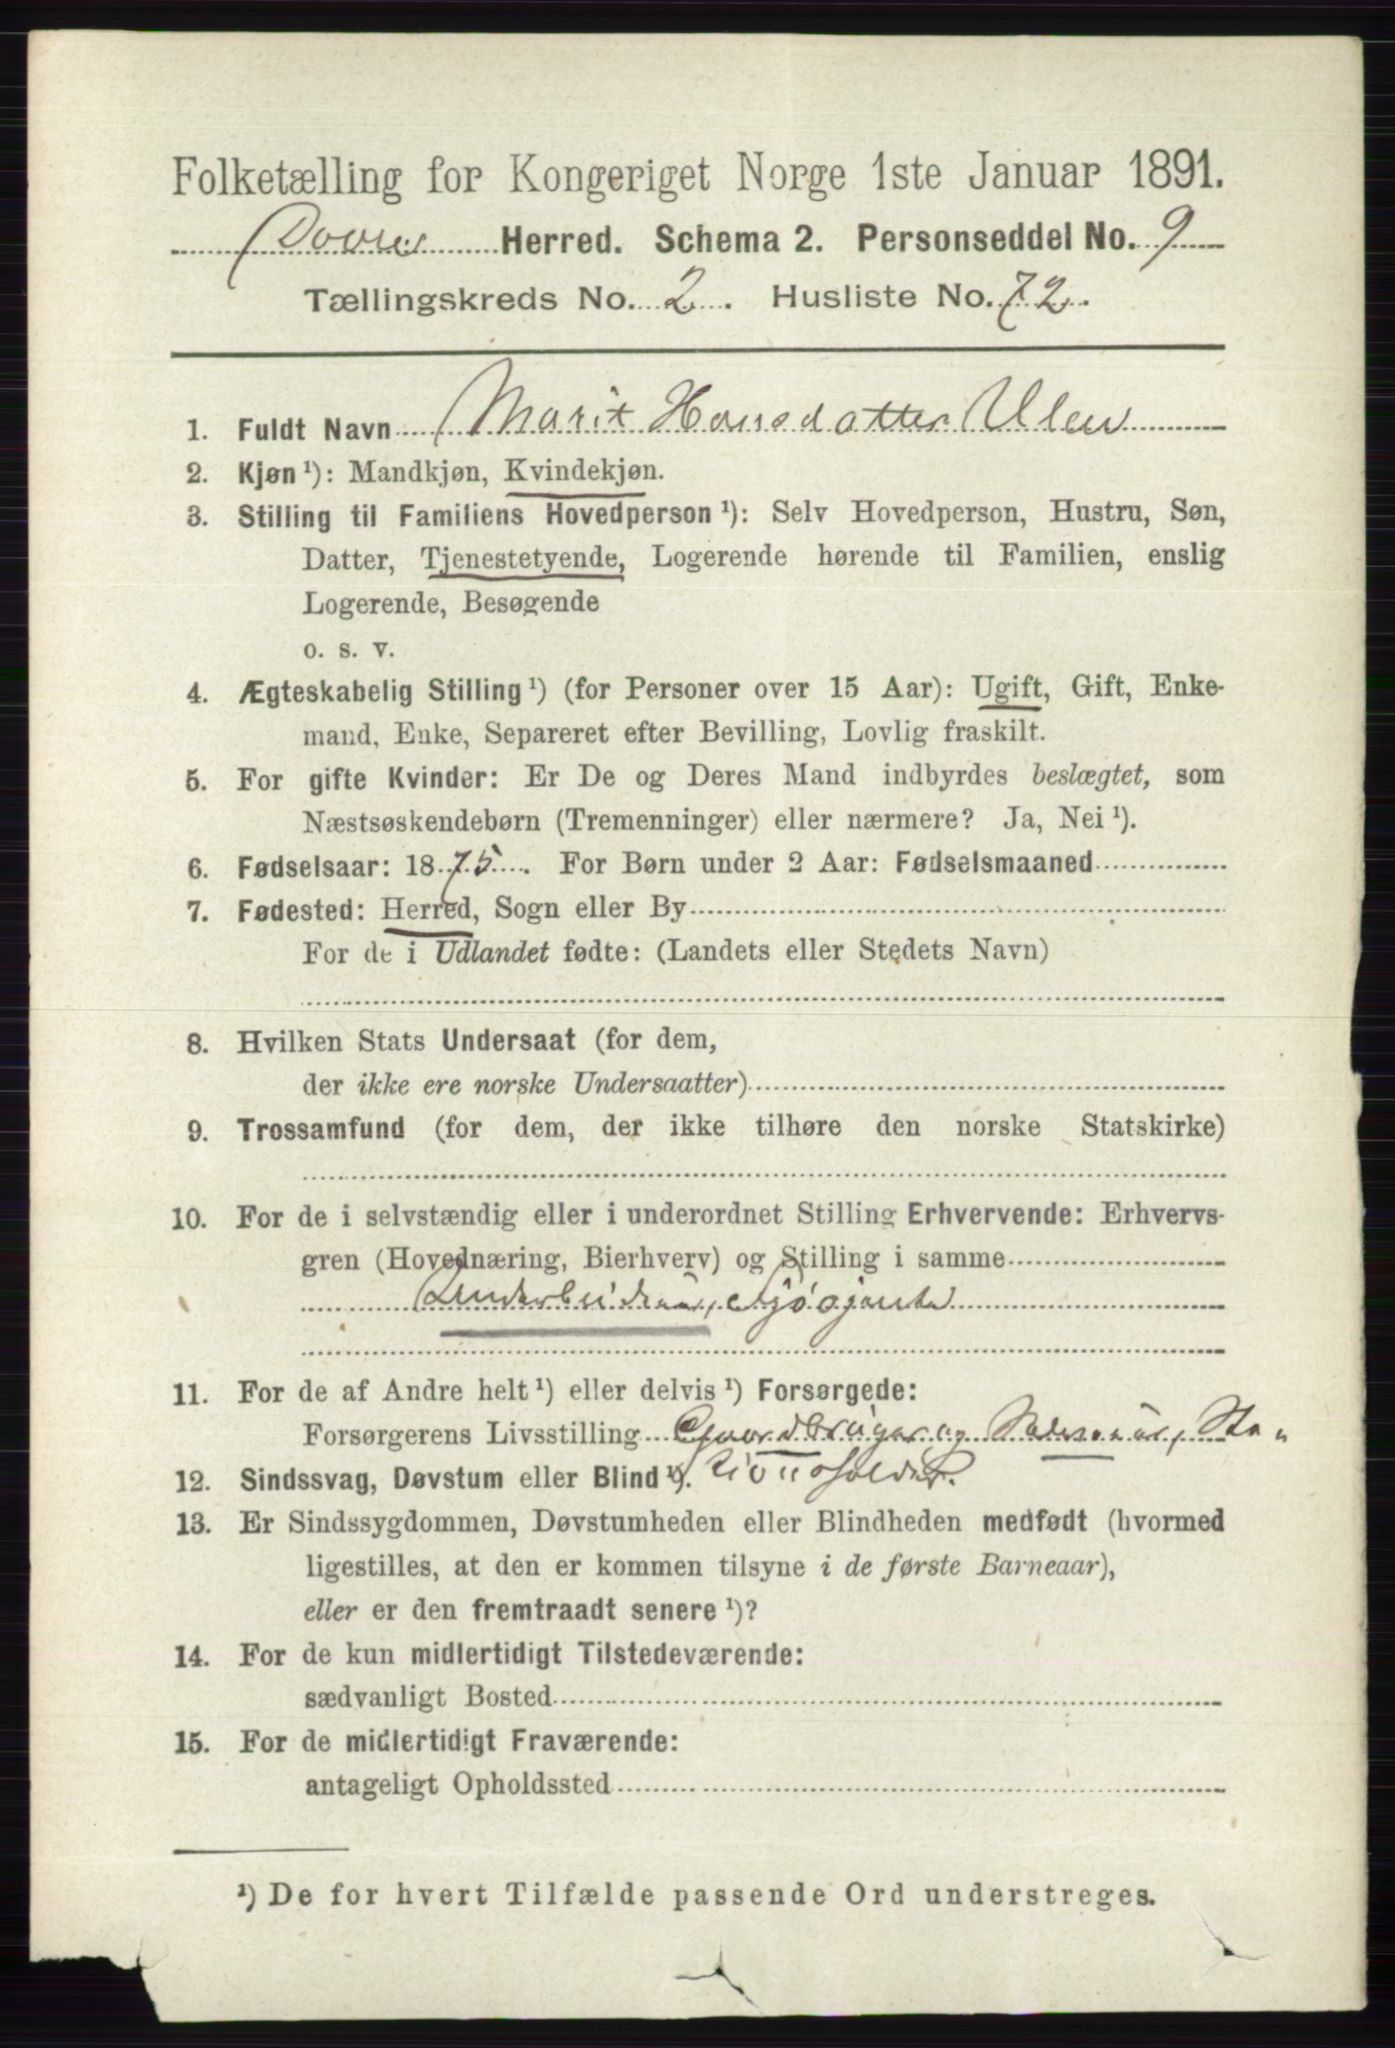 Folketælling for Kongeriget Norge 1ste Januar 1891.
Dovre Herred. Schema 2. Personseddel No. 9
Tællingskreds No. 2. Husliste No. 72.
1. Fuldt Navn Marit Hansdatter Ulen
2. Kjøn ¹): Mandkjøn, Kvindekjøn.
3. Stilling til Familiens Hovedperson ¹): Selv Hovedperson, Hustru, Søn,
Datter, Tjenestetyende, Logerende hørende til Familien, enslig
Logerende, Besøgende
o. s. v.
4. Ægteskabelig Stilling ¹) (for Personer over 15 Aar): Ugift, Gift, Enke-
mand, Enke, Separeret efter Bevilling, Lovlig fraskilt.
5. For gifte Kvinder: Er De og Deres Mand indbyrdes beslægtet, som
Næstsøskendebørn (Tremenninger) eller nærmere? Ja, Nei ¹).
6. Fødselsaar: 1875. For Børn under 2 Aar: Fødselsmaaned
7. Fødested: Herred, Sogn eller By
For de i Udlandet fødte: (Landets eller Stedets Navn)
8. Hvilken Stats Undersaat (for dem,
der ikke ere norske Undersaatter)
9. Trossamfund (for dem, der ikke tilhøre den norske Statskirke)
10. For de i selvstændig eller i underordnet Stilling Erhvervende: Erhvervs-
gren (Hovednæring, Bierhverv) og Stilling i samme
11. For de af Andre helt ¹) eller delvis ¹) Forsørgede:
Forsørgerens Livsstilling Gaardbruger og Sta-
12. Sindssvag, Døvstum eller Blind ¹). tionsholder.
13. Er Sindssygdommen, Døvstumheden eller Blindheden medfødt (hvormed
ligestilles, at den er kommen tilsyne i de første Barneaar),
eller er den fremtraadt senere ¹)?
14. For de kun midlertidigt Tilstedeværende:
sædvanligt Bosted
15. For de midlertidigt Fraværende:
antageligt Opholdssted
¹) De for hvert Tilfælde passende Ord understreges.